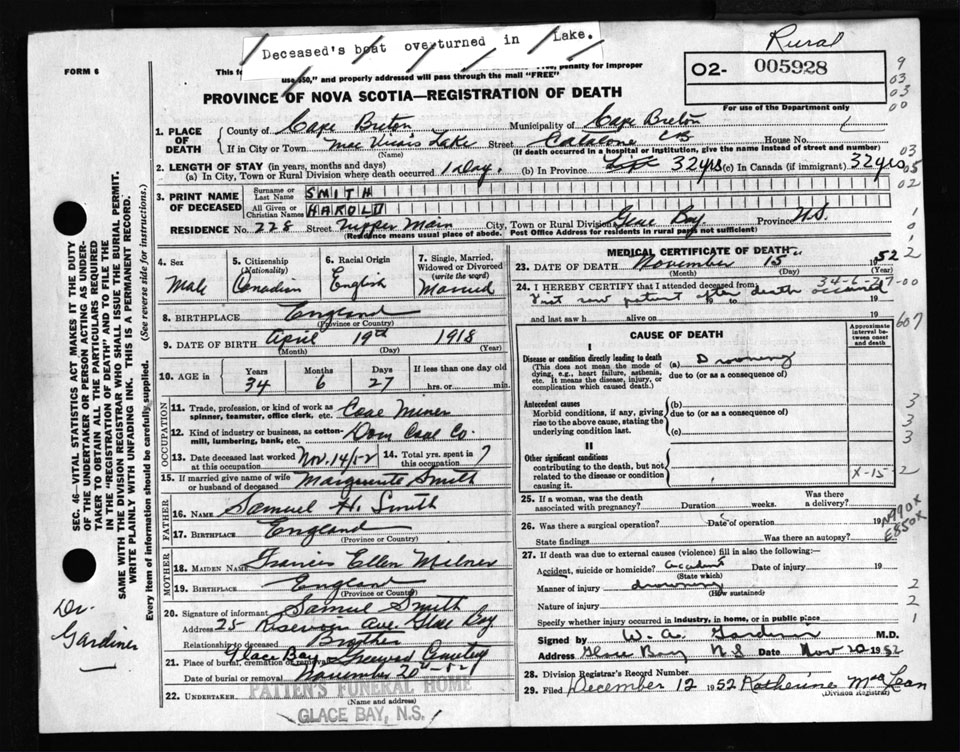 Deceased's boat overturned in Lake.
Rural
FORM 6
This f
Free, penalty for improper
use $50," and properly addressed will pass through the mail "FREE"
O2- 005928
For use of the Department only
PROVINCE OF NOVA SCOTIA—REGISTRATION OF DEATH
1. PLACE OF DEATH
County of Cape Breton Municipality of Cape Breton
If in City or Town Mac Vicars Lake Street Catalone House No.
(Name) (If death occurred in a hospital or institution, give the name instead of street and number)
2. LENGTH OF STAY (in years, months and days)
(a) In City, Town or Rural Division where death occurred 1 Day. (b) In Province Life 32 yrs (c) In Canada (if immigrant) 32 yrs
3. PRINT NAME OF DECEASED
Surname or Last Name SMITH
All Given or Christian Names HAROLD
RESIDENCE No. 228 Street Upper Main City, Town or Rural Division Glace Bay Province N.S.
(Residence means usual place of abode. Post Office Address for residents in rural parts not sufficient)
4. Sex Male
5. Citizenship (Nationality) Canadian
6. Racial Origin English
7. Single, Married, Widowed or Divorced (write the word) Married
8. BIRTHPLACE England
(Province or Country)
9. DATE OF BIRTH April 19th 1918
(Month) (Day) (Year)
10. AGE in Years 34 Months 6 Days 27 If less than one day old
hrs. or min.
OCCUPATION
11. Trade, profession, or kind of work as spinner, teamster, office clerk, etc. Coal Miner
12. Kind of industry or business, as cotton-mill, lumbering, bank, etc. Dom Coal Co.
13. Date deceased last worked at this occupation Nov. 14/52 14. Total yrs. spent in this occupation 7
15. If married give name of wife or husband of deceased Marguerite Smith
FATHER
16. NAME Samuel H. Smith
17. BIRTHPLACE England
(Province or Country)
MOTHER
18. MAIDEN NAME Francis Ellen Milner
19. BIRTHPLACE England
(Province or Country)
20. Signature of informant Samuel Smith
Address 25 Reservoir Ave. Glace Bay
Relationship to deceased Brother
21. Place of burial, cremation or removal Glace Bay Greenwood Cemetery
Date of burial or removal November 20th 52
22. UNDERTAKER PATTEN'S FUNERAL HOME
(Name and address)
GLACE BAY, N.S.
MEDICAL CERTIFICATE OF DEATH
23. DATE OF DEATH November 15 1952
(Month) (Day) (Year)
34-6-27-00
24. I HEREBY CERTIFY that I attended deceased from
First saw patient after death occurred
to 19
and last saw h alive on 19
CAUSE OF DEATH
Approximate interval between onset and death
I
Disease or condition directly leading to death (a) Drowning
(This does not mean the mode of dying, e.g., heart failure, asthenia, etc. It means the disease, injury, or complication which caused death.)
due to (or as a consequence of)
Antecedent causes (b)
Morbid conditions, if any, giving rise to the above cause, stating the underlying condition last.
due to (or as a consequence of)
(c)
II
Other significant conditions
contributing to the death, but not related to the disease or condition causing it.
X-15-2
25. If a woman, was the death associated with pregnancy? Duration weeks. Was there a delivery?
26. Was there a surgical operation? Date of operation 19
N990X
E850X
State findings Was there an autopsy?
27. If death was due to external causes (violence) fill in also the following:—
Accident, suicide or homicide? accident Date of injury 19
(State which)
Manner of injury drowning
(How sustained)
Nature of injury
Specify whether injury occurred in industry, in home, or in public place
Signed by W. A. Gardiner M.D.
Address Glace Bay NS Date Nov 20 1952
28. Division Registrar's Record Number
29. Filed December 12 1952 Katherine MacLean
(Division Registrar)
SEC. 46—VITAL STATISTICS ACT MAKES IT THE DUTY
OF THE UNDERTAKER OR PERSON ACTING AS UNDER-
TAKER TO OBTAIN ALL THE PARTICULARS REQUIRED
IN THE "REGISTRATION OF DEATH" AND TO FILE THE
SAME WITH THE DIVISION REGISTRAR WHO SHALL ISSUE THE BURIAL PERMIT.
WRITE PLAINLY WITH UNFADING INK. THIS IS A PERMANENT RECORD.
Every item of information should be carefully supplied. (See reverse side for instructions.)
Dr.
Gardiner
9
03
03
00
03
05
02
1
0
1
2
607
3
3
3
2
2
1